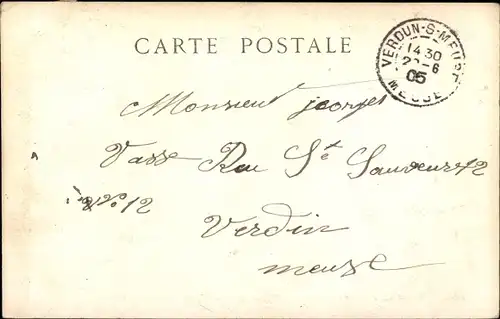 CARTE POSTALE
VERDUN-S-MEUSE
14 30
6
05
MEUSE
Monsieur jeorges
Vasse Rue Ste Sauveur 12
No 12
Verdin
meuse